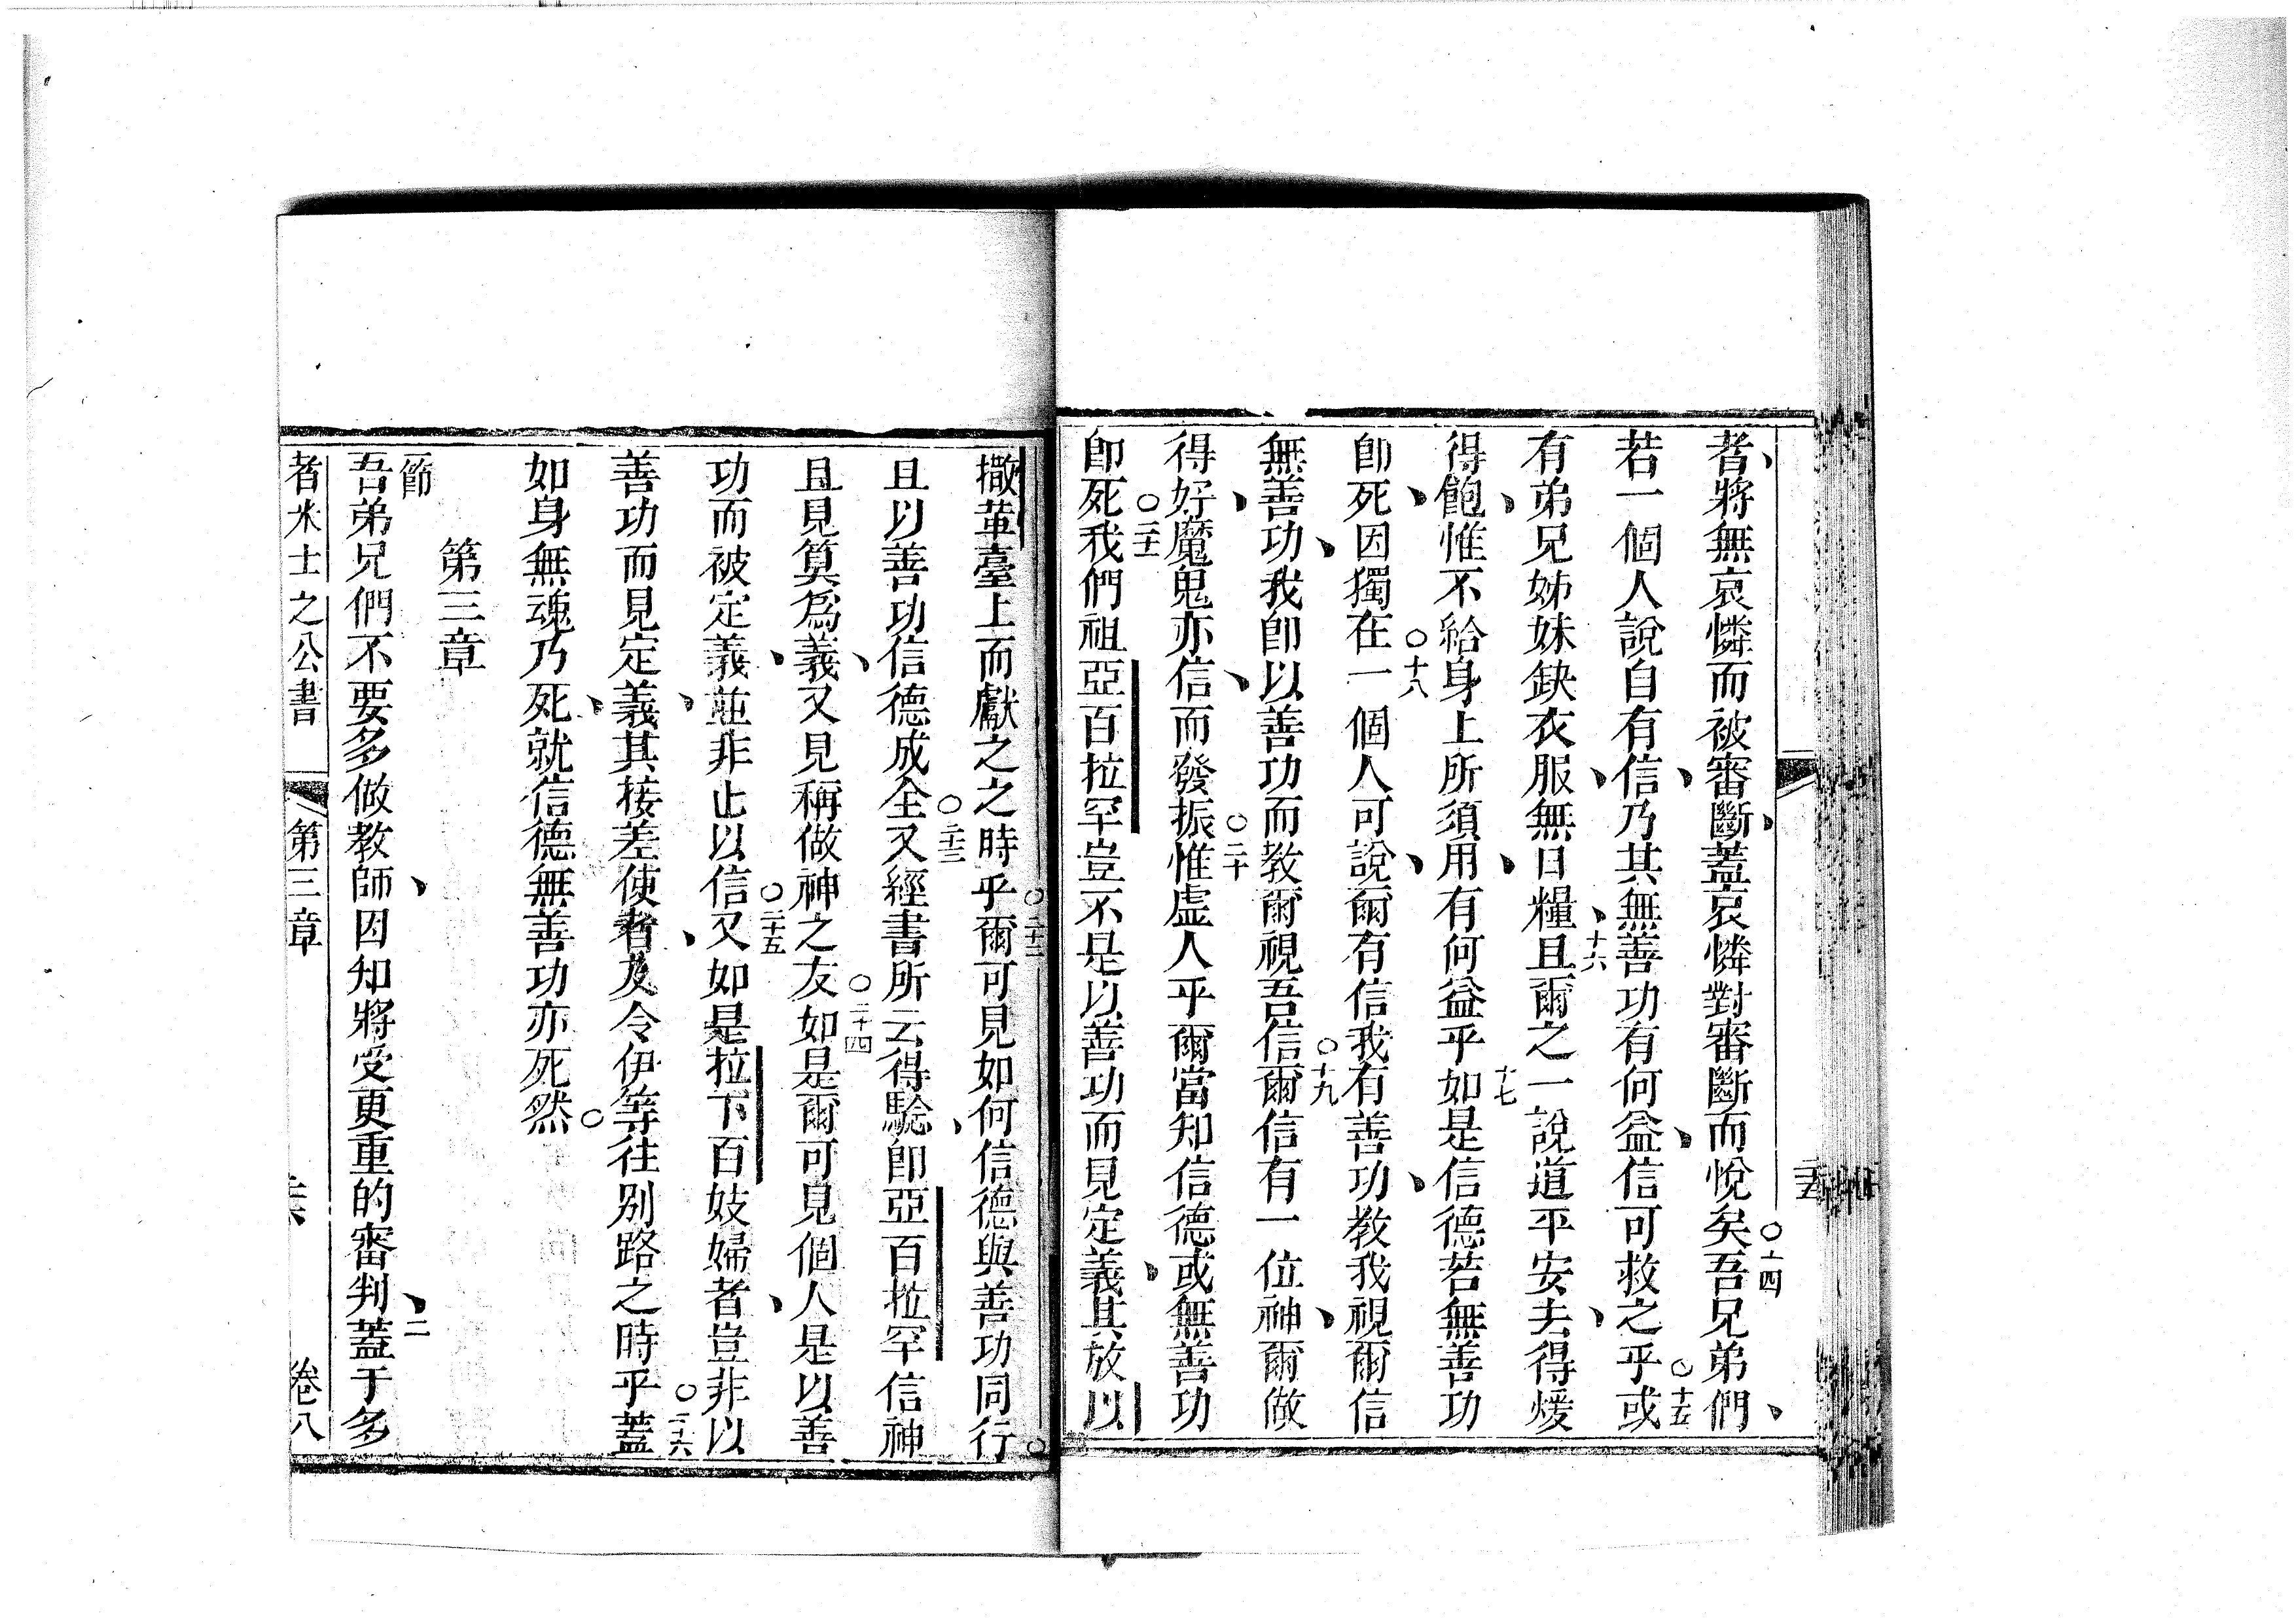 者將無哀憐而被審斷蓋哀憐對審斷而悅矣吾兄弟們
十四
若一個人說自有信乃其無善功有何益信可救之乎或
十五
有弟兄姊妹缺衣服無日糧且爾之一說道平安去得煖
十六
得飽惟不給身上所須用有何益乎如是信德若無善功
十七
卽死因獨在一個人可說爾有信我有善功教我視爾信
十八
無善功我卽以善功而教爾視吾信爾信有一位神爾做
十九
得好魔鬼亦信而發振惟虛人乎爾當知信德或無善功
二十
卽死我們祖亞百拉罕豈不是以善功而見定義其放以
二十一
撒革臺上而獻之之時乎爾可見如何信德與善功同行
二十二
且以善功信德成全又經書所云得驗卽亞百拉罕信神
二十三
且見算為義又見稱做神之友如是爾可見個人是以善
二十四
功而被定義並非止以信又如是拉下百妓婦者豈非以
二十五
善功而見定義其接差使者及令伊等往別路之時乎蓋
二十六
如身無魂乃死就信德無善功亦死然
第三章
一節
吾弟兄們不要多做教師因知將受更重的審判蓋于多
二
者米士之公書 第三章 卷八